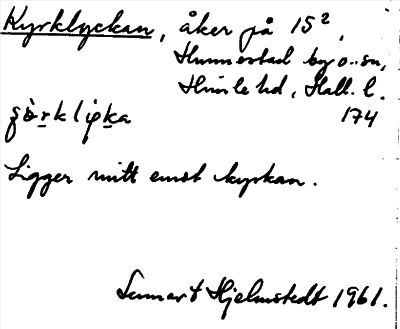 Kyrklyckan, åker på 15²,
Hunnestad by o. sn,
Himle hd, Hall. l.
174
Ligger mitt emot kyrkan.
Lennart Hjelmstedt 1961.